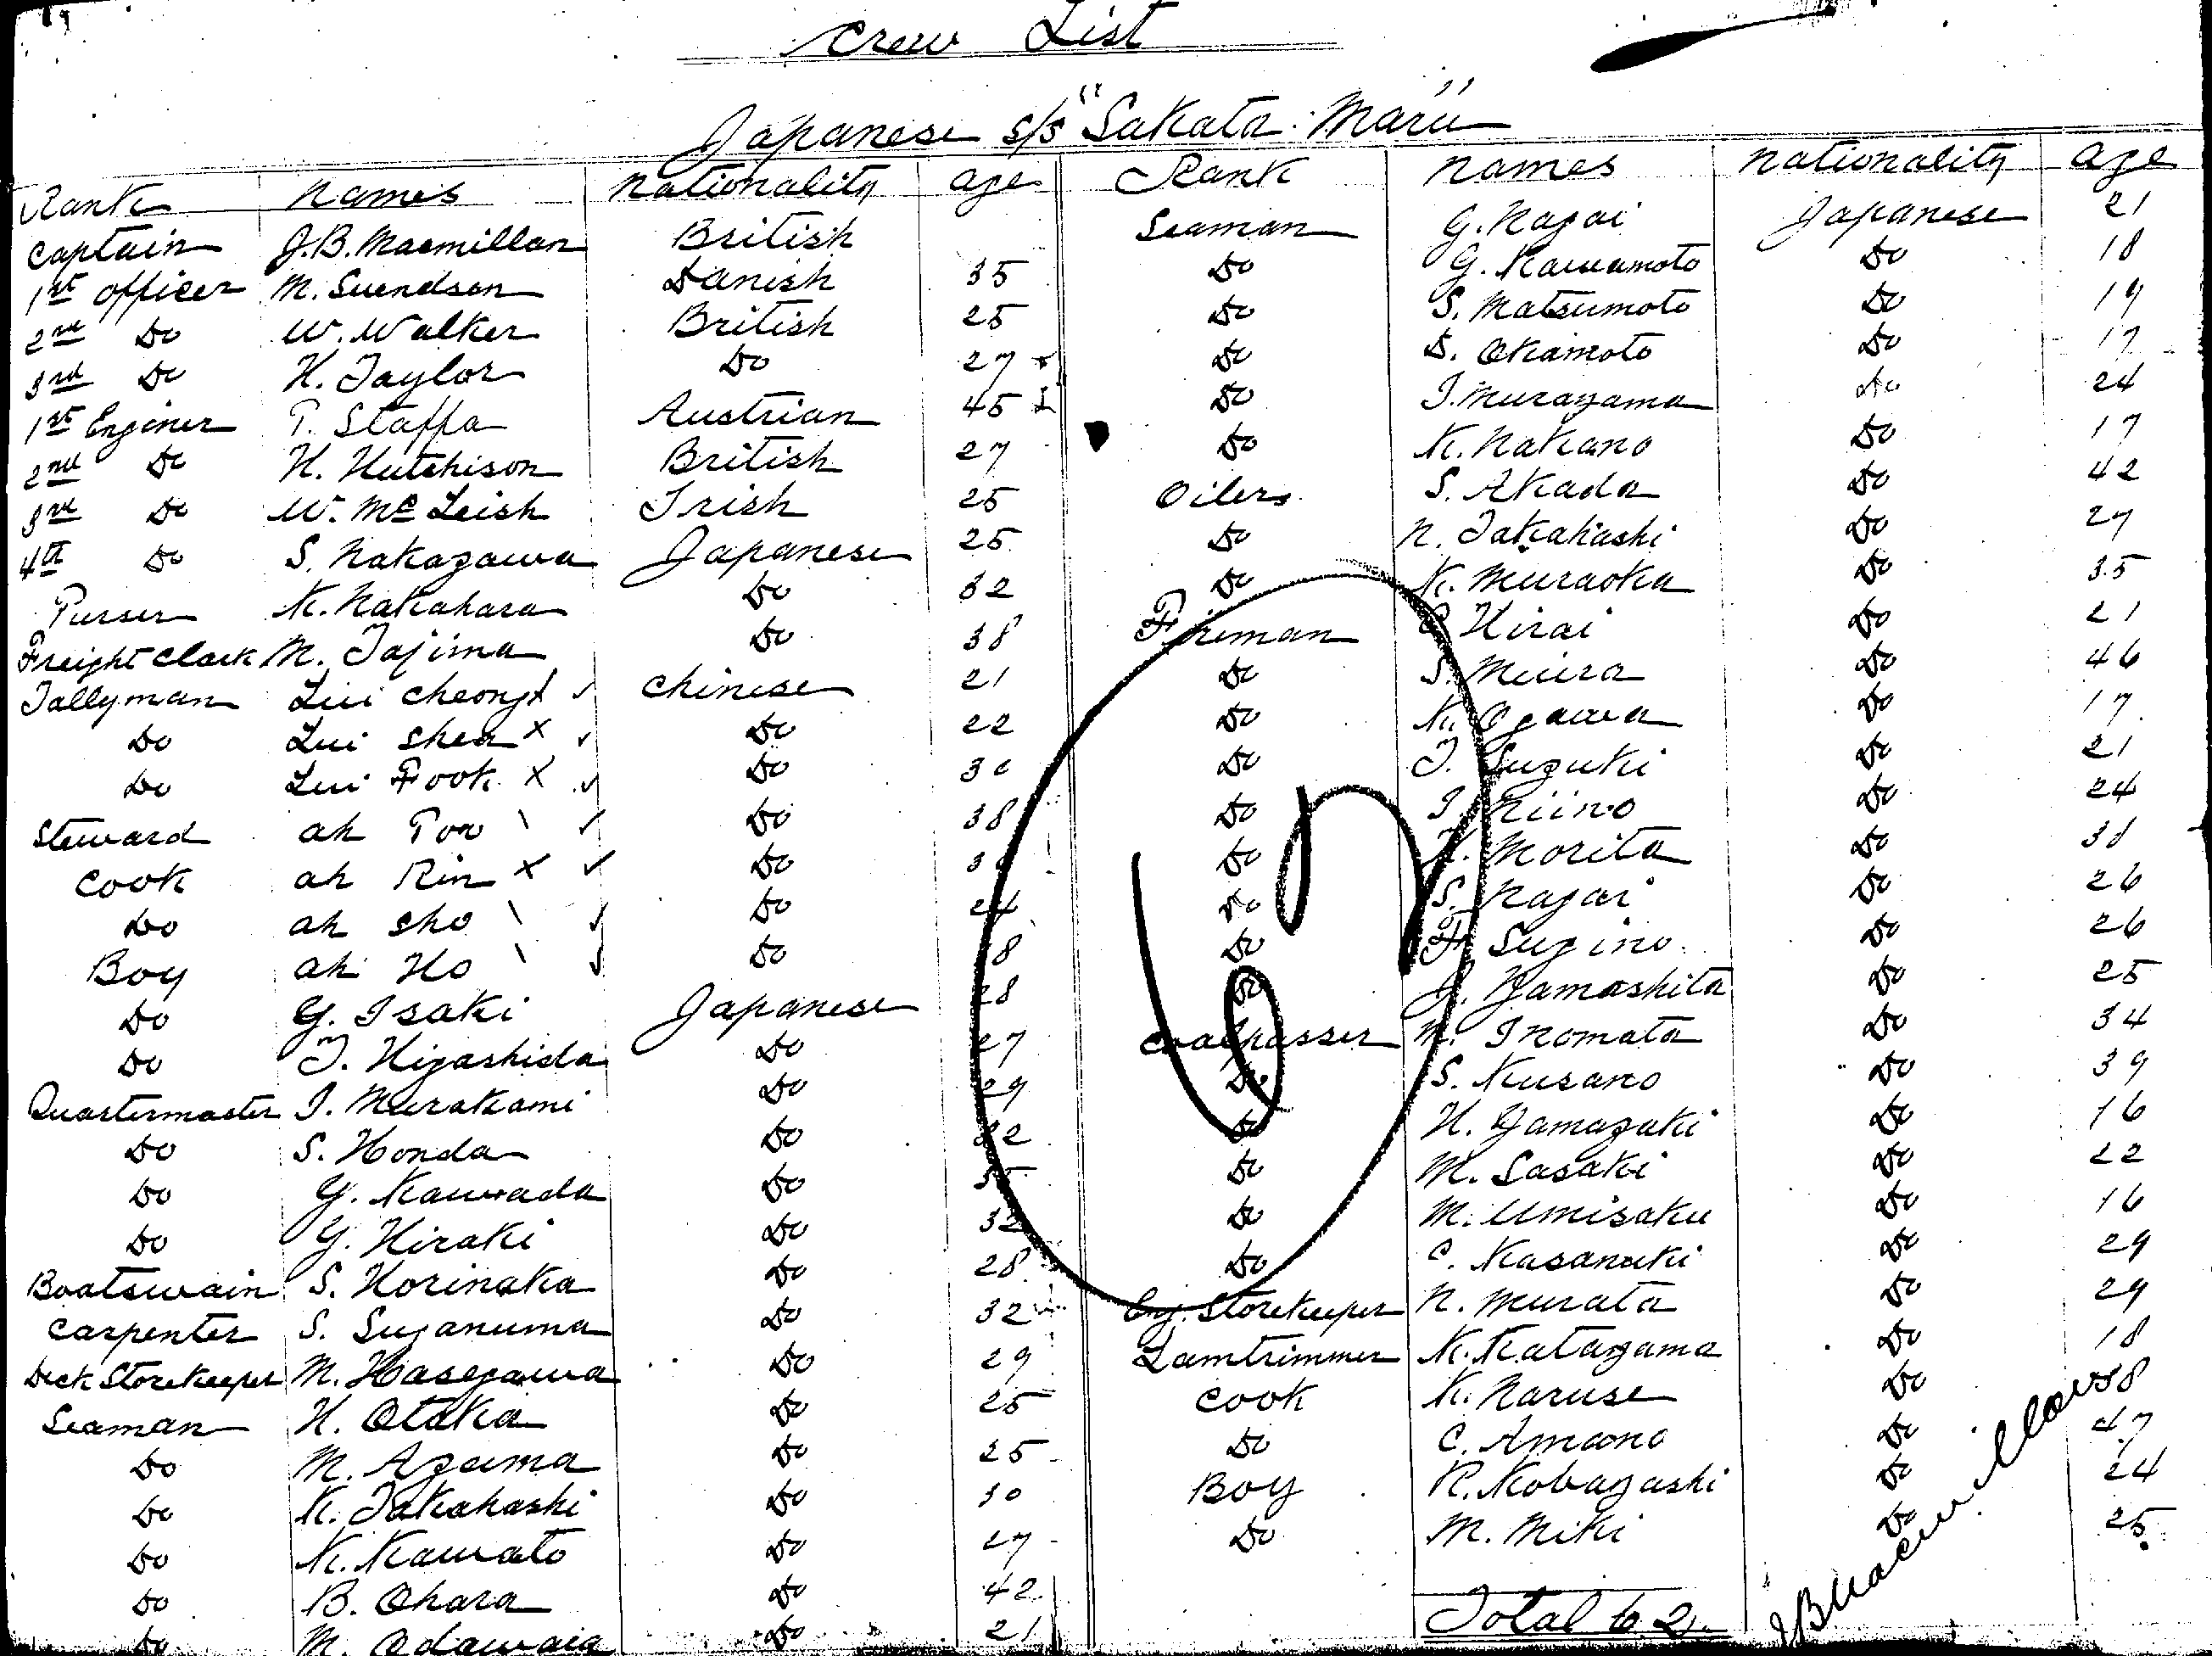 Crew List
Japanese s/s "Sakata Maru"
Rank Names Nationality Age
Captain J.B. Macmillan British
1st Officer M. Svendsen Danish 35
2nd Do W. Walker British 25
3rd Do H. Taylor Do 27
1st Enginer P. Staffa Austrian 45
2nd Do H. Hutchison British 27
3rd Do W. Mc Leish Irish 25
4th Do S. Nakazawa Japanese 25
Purser K. Nakahara Do 32
Freight Clark M. Tajima Do 38
Tallyman Lui Cheong Chinese 21
Do Lui Shea Do 22
Do Lui Fook Do 30
Steward Ah Pow Do 38
Cook Ah Rin Do
Do Ah Sho Do 24
Boy Ah Ho Do 18
Do G. Isaki Japanese 28
Do T. Higashida Do 27
Quartermaster I. Murakami Do 29
Do S. Honda Do 32
Do Y. Kawada Do
Do Y. Hiraki Do 32
Boatswain S. Horinaka Do 28
Carpenter S. Suganuma Do 32
Deck Storekeeper M. Hasegawa Do 29
Seaman H. Otaka Do 25
Do M. Azuma Do 25
Do K. Takahashi Do 30
Do K. Kawato Do 27
Do B. Ohara Do 42
Do M. Do 21
Rank Names Nationality Age
Seaman G. Nagai Japanese 21
Do G. Kawamoto Do 18
Do S. Matsumoto Do 19
Do D. Okamoto Do 17
Do I. Murayama Do 24
Do K. Nakano Do 17
Oilers S. Akada Do 42
Do N. Takahashi Do 27
Do K. Muraoka Do 35
Fireman Hirai Do 21
Do S. Miura Do 46
Do K. Ogawa Do 17
Do T. Suzuki Do 21
Do I. Niino Do 24
Do K. Morita Do 38
Do S. Nagai Do 26
Do F. Sugino Do 26
Do Y. Yamashita Do 25
Coalpasser M. Inomata Do 34
Do S. Kusano Do 39
Do H. Yamazaki Do 16
Do M. Sasaki Do 22
Do M. Umisaku Do 16
Do C. Kasanuki Do 29
Eng. Storekeeper N. Murata Do 29
Lamtrimmer K. Katayama Do 18
Cook K. Naruse Do
Do C. Amano Do 47
Boy R. Kobayashi Do 24
Do M. Miki Do 25
Total 62
JB Macmillan